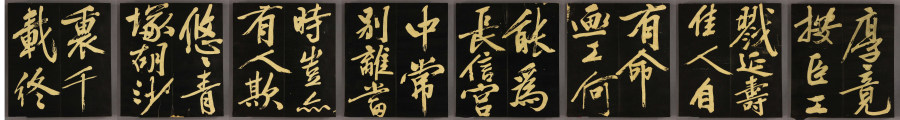 厚竟
按臣工
戮延壽
佳人自
有命
畫工何
能為
長信宮
中常
别離當
時豈亦
有人欺
悠悠青
塚胡沙
裏千
載終